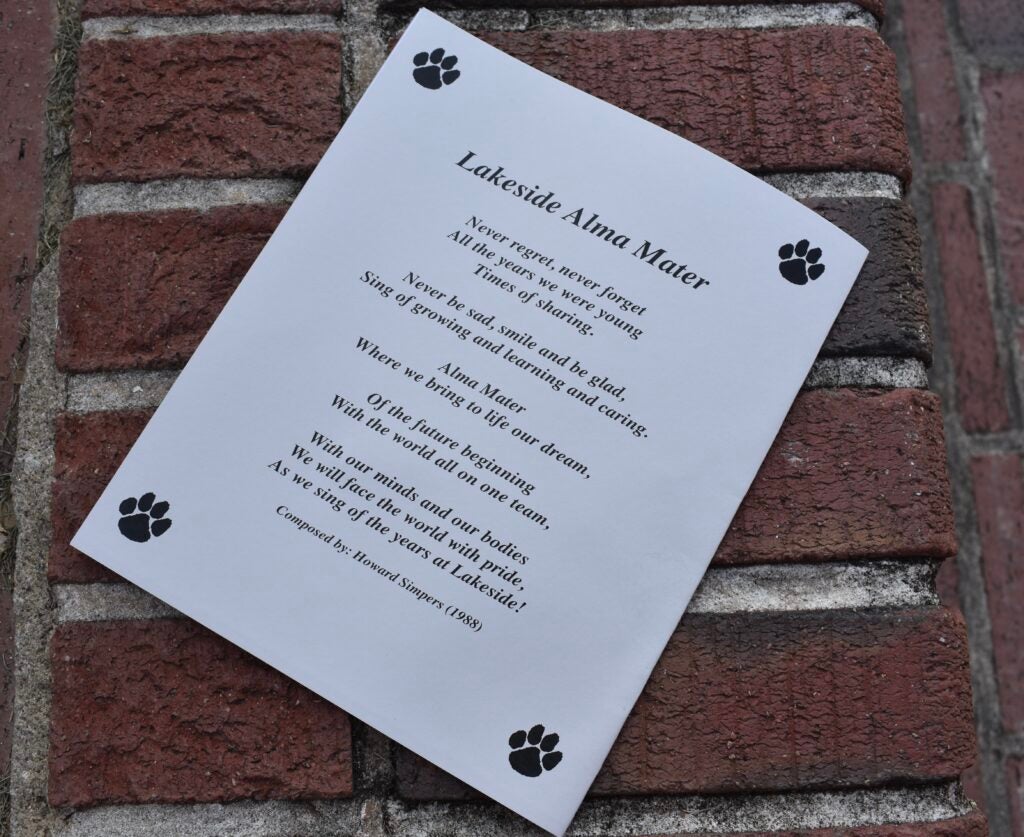 Lakeside Alma Mater
Never regret, never forget
All the years we were young
Times of sharing.
Never be sad, smile and be glad,
Sing of growing and learning and caring.
Alma Mater
Where we bring to life our dream,
Of the future beginning
With the world all on one team,
With our minds and our bodies
We will face the world with pride,
As we sing of the years at Lakeside!
Composed by: Howard Simpers (1988)